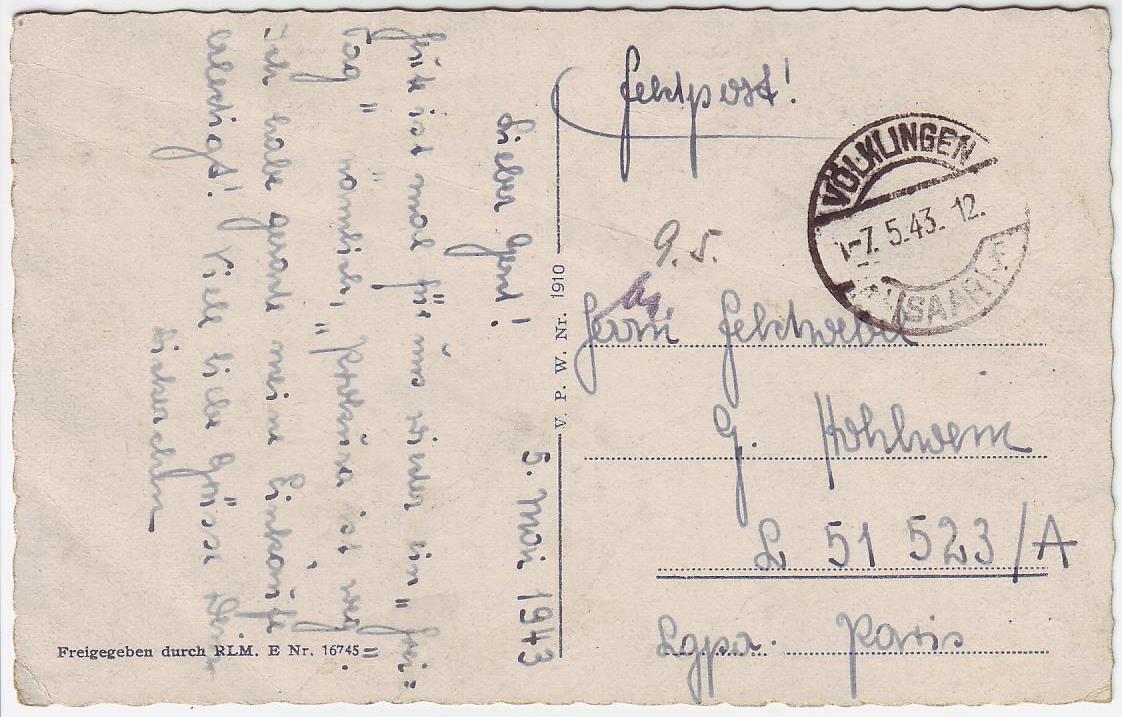 Feldpost!
VÖLKLINGEN
-7. 5.43. 12.
(SAAR)
9. 5.
Herrn Feldwebel
G. Hohlwein
L 51 523/A
Lgpa. Paris
V. P. W. Nr. 1910
5. Mai 1943
Lieber Gerd!
ist mal für uns wieder ein „frei=
Tag" nämlich, „Prokura ist weg".
Ich habe gerade meine Einkäufe
erledigt! Viele liebe Grüsse Dein
Dickerchen
Freigegeben durch RLM. E Nr. 16745